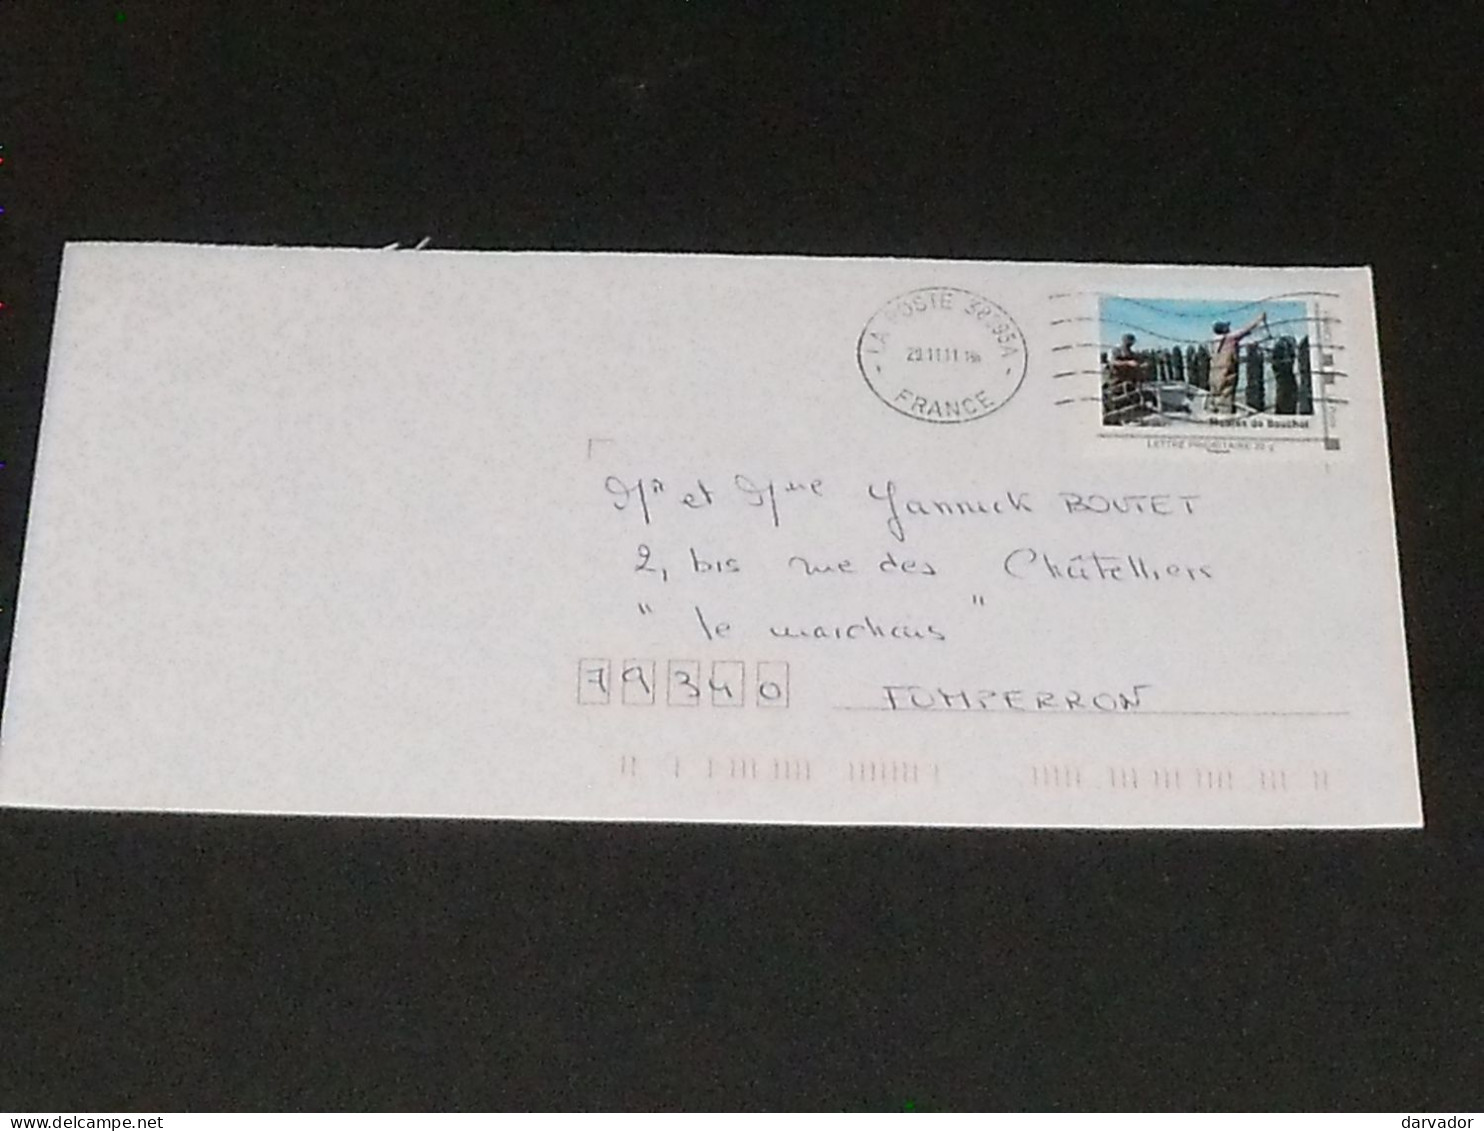 LA POSTE
29.11.11
FRANCE
de Bouchot
LETTRE PRIORITAIRE 20 g
Mr et Mme Yannick BOUTET
2, bis rue des Châtelliers
" le marchais "
79340 FOMPERRON
darvador